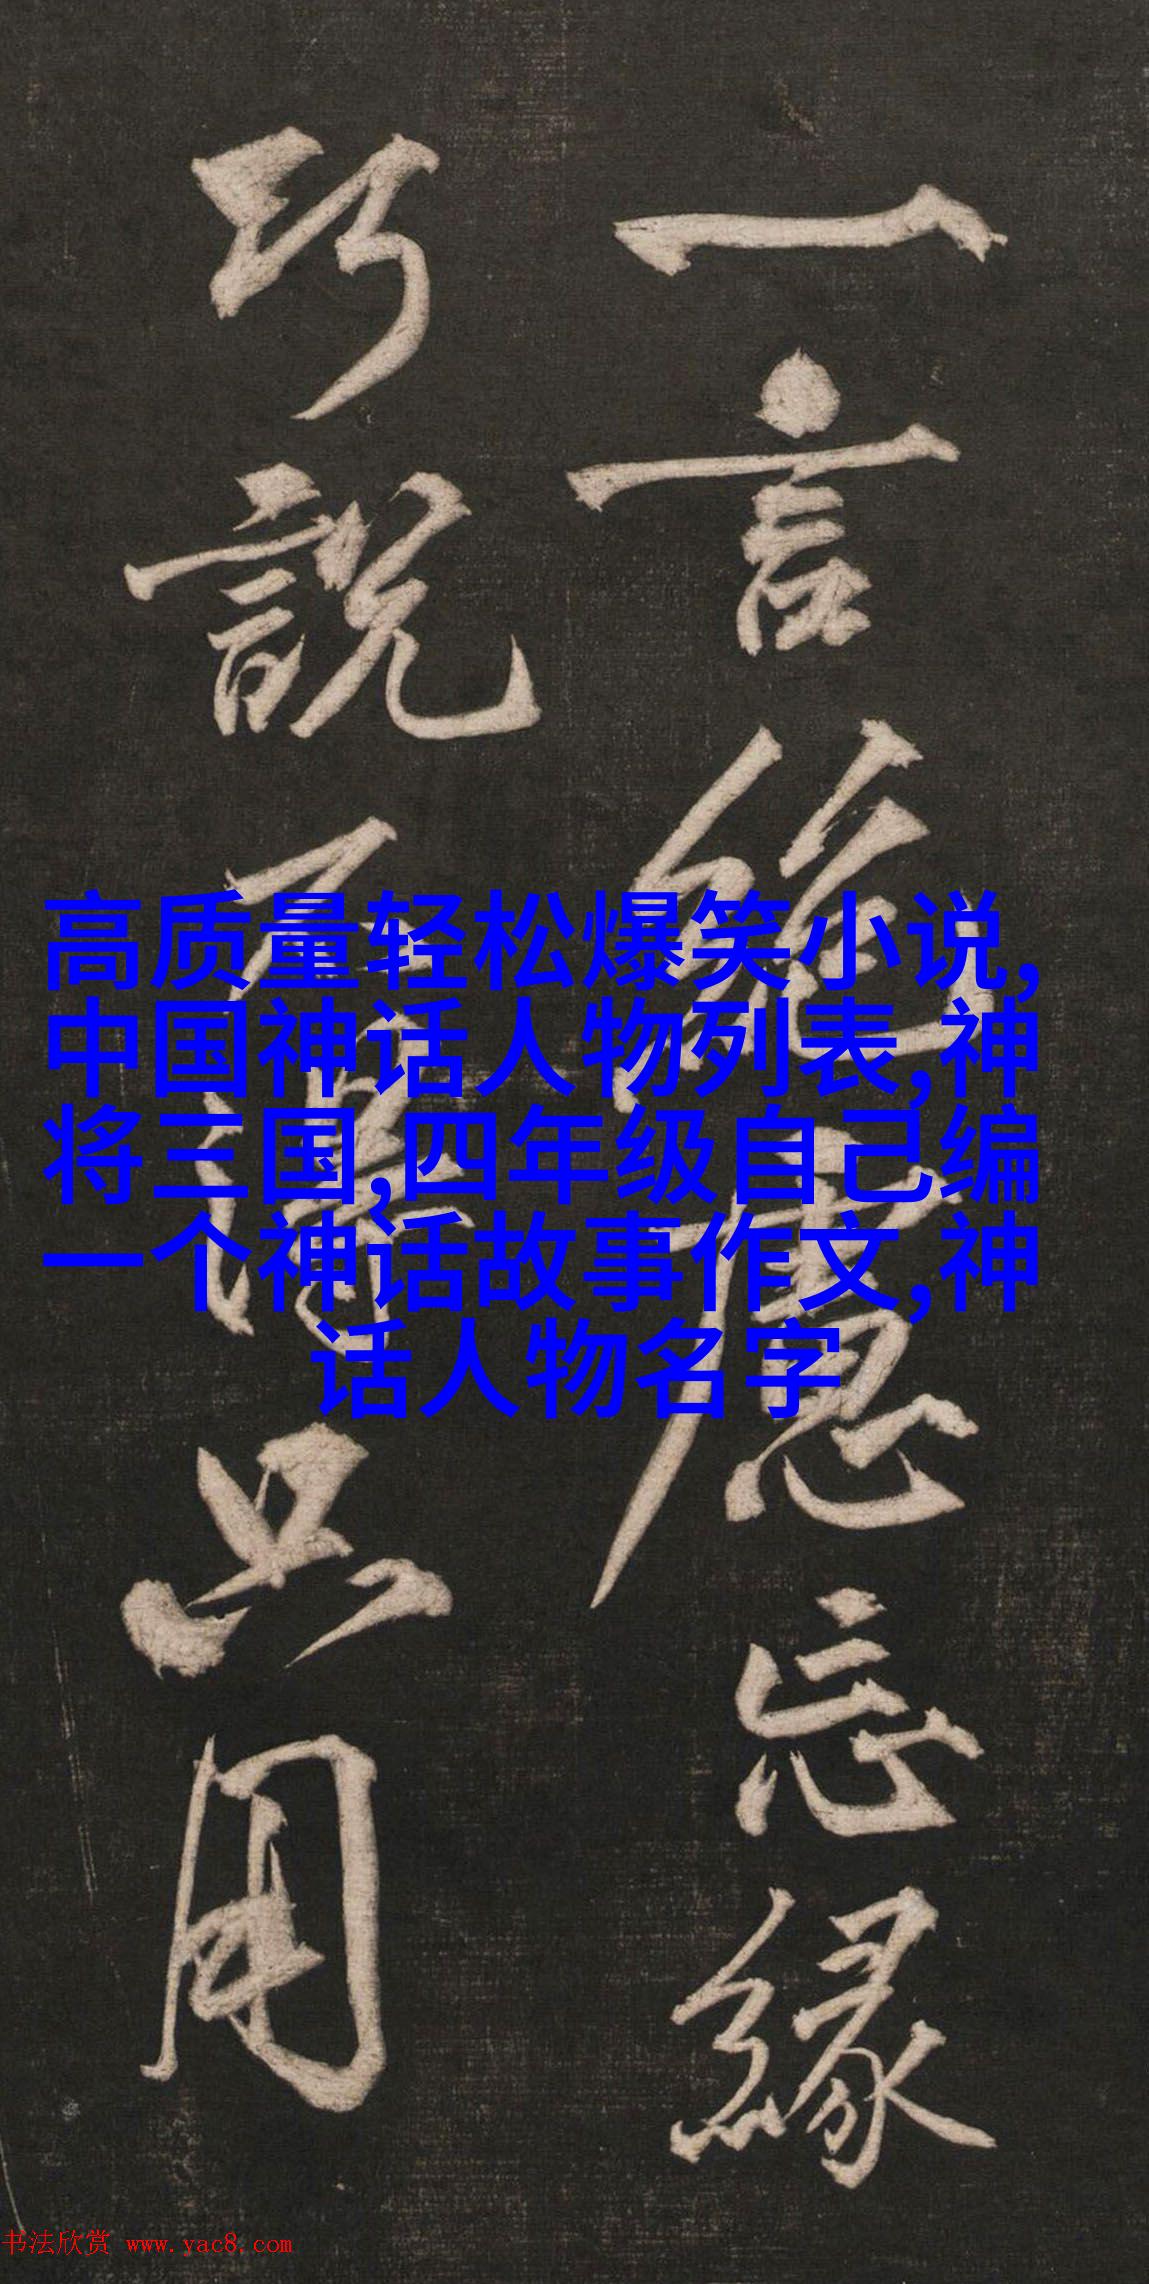 一言絶慮忘緣
巧說不得只用
高质量轻松爆笑小说,
中国神话人物列表,神
将三国,四年级自己编
一个神话故事作文,神
话人物名字
书法欣赏 www.yac8.com